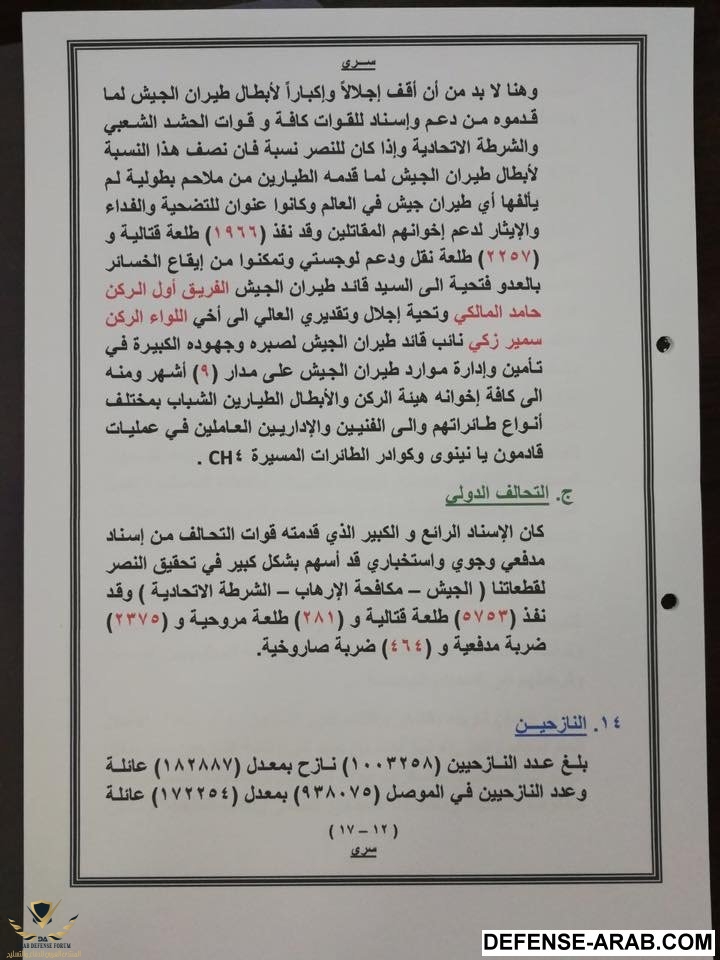 سـري
وهنا لا بد من أن أقف إجلالاً وإكباراً لأبطال طيران الجيش لما
قدموه من دعم وإسناد للقوات كافة و قوات الحشد الشعبي
والشرطة الاتحادية وإذا كان للنصر نسبة فان نصف هذا النسبة
لأبطال طيران الجيش لما قدمه الطيارين من ملاحم بطولية لم
يألفها أي طيران جيش في العالم وكانوا عنوان للتضحية والفداء
والإيثار لدعم إخوانهم المقاتلين وقد نفذ (١٩٦٦) طلعة قتالية و
(٢٢٥٧) طلعة نقل ودعم لوجستي وتمكنوا من إيقاع الخسائر
بالعدو فتحية الى السيد قائد طيران الجيش الفريق أول الركن
حامد المالكي وتحية إجلال وتقديري العالي الى أخي اللواء الركن
سمير زكي نائب قائد طيران الجيش لصبره وجهوده الكبيرة في
تأمين وإدارة موارد طيران الجيش على مدار (٩) أشهر ومنه
الى كافة إخوانه هيئة الركن والأبطال الطيارين الشباب بمختلف
أنواع طائراتهم والى الفنيين والإداريين العاملين في عمليات
قادمون يا نينوى وكوادر الطائرات المسيرة CH٤ .
ج. التحالف الدولي
كان الإسناد الرائع و الكبير الذي قدمته قوات التحالف من إسناد
مدفعي وجوي واستخباري قد أسهم بشكل كبير في تحقيق النصر
لقطعاتنا ( الجيش – مكافحة الإرهاب – الشرطة الاتحادية ) وقد
نفذ (٥٧٥٣) طلعة قتالية و (٢٨١) طلعة مروحية و (٢٣٧٥)
ضربة مدفعية و (٤٦٤) ضربة صاروخية.
١٤. النازحيـن
بلغ عدد النازحيين (١٠٠٣٢٥٨) نازح بمعدل (١٨٢٨٨٧) عائلة
وعدد النازحيين في الموصل (٩٣٨٠٧٥) بمعدل (١٧٢٢٥٤) عائلة
( ١٢ – ١٧ )
سري
DEFENSE-ARAB.COM
AB DEFENSE FORUM